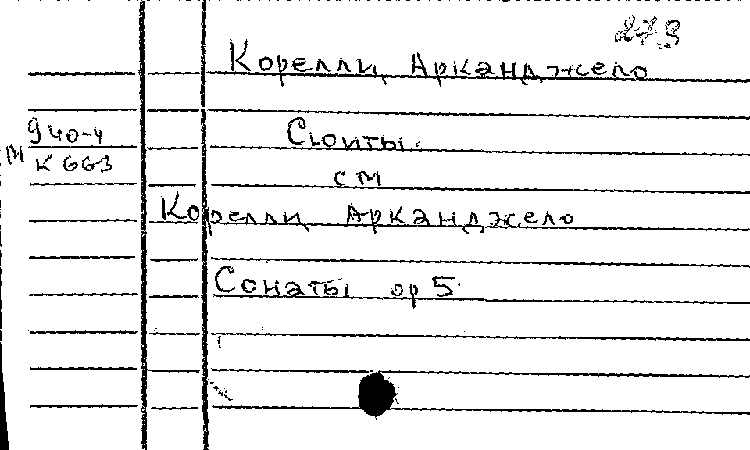 273
Корелли, Арканджело
940-4
М
К 663
Сюиты.
см
Корелли Арканджело
Сонаты ор 5